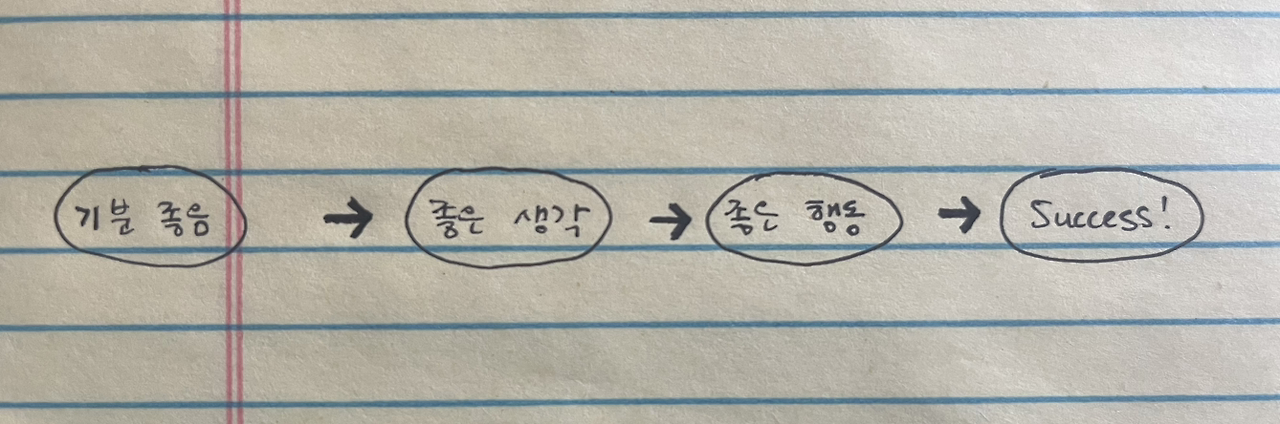 기분 좋음 → 좋은 생각 → 좋은 행동 → Success!